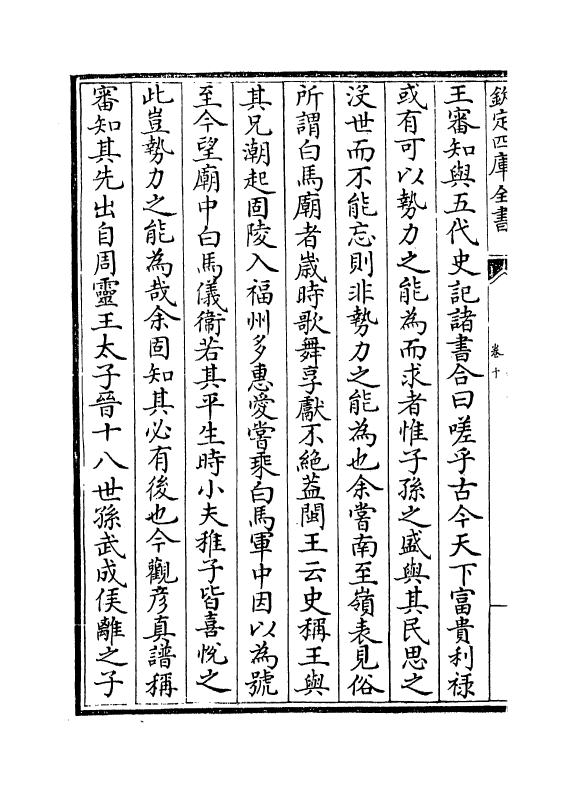 欽定四庫全書
卷十
王審知與五代史記諸書合曰嗟乎古今天下富貴利祿
或有可以勢力之能為而求者惟子孫之盛與其民思之
沒世而不能忘則非勢力之能為也余嘗南至嶺表見俗
所謂白馬廟者歲時歌舞享獻不絶葢閩王云史稱王與
其兄潮起固陵入福州多惠愛嘗乘白馬軍中因以為號
至今望廟中白馬儀衛若其平生時小夫稚子皆喜悅之
此豈勢力之能為哉余固知其必有後也今觀彦真譜稱
審知其先出自周靈王太子晉十八世孫武成侯離之子